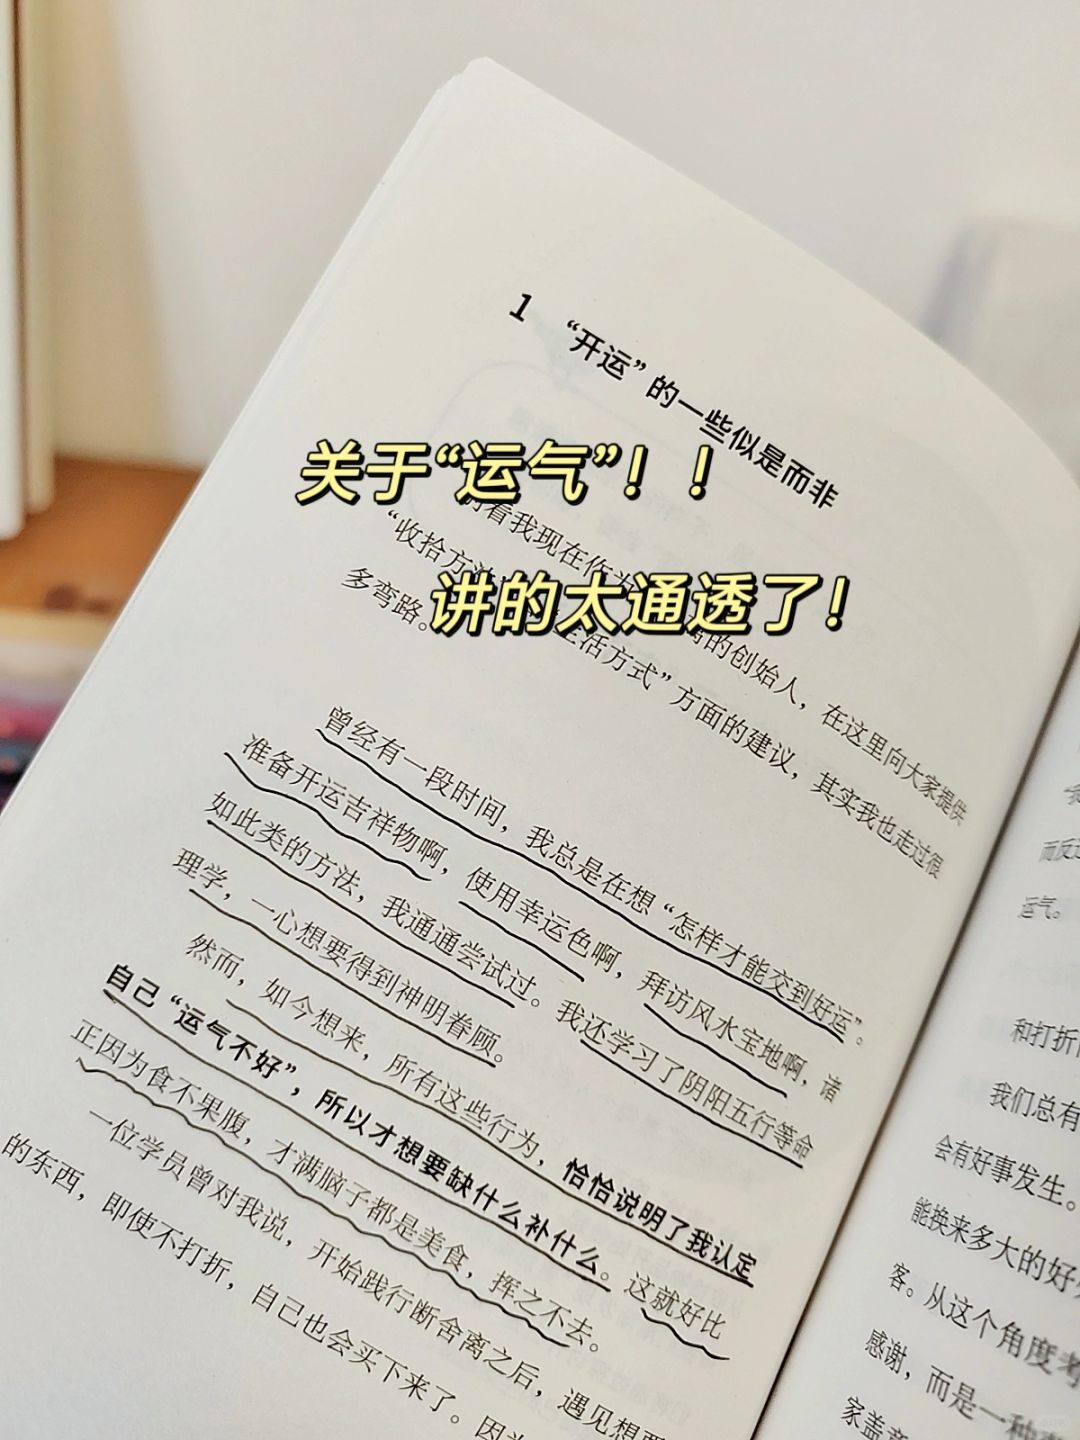 1 “开运”的一些似是而非
关于“运气”！！
讲的太通透了！
看我现在作为
的创始人，在这里向大家提供
“收拾方法
生活方式”方面的建议，其实我也走过很
多弯路。
曾经有一段时间，我总是在想“怎样才能交到好运”。
准备开运吉祥物啊，使用幸运色啊，拜访风水宝地啊，诸
如此类的方法，我通通尝试过。我还学习了阴阳五行等命
理学，一心想要得到神明眷顾。
然而，如今想来，所有这些行为，恰恰说明了我认定
自己“运气不好”，所以才想要缺什么补什么。这就好比
正因为食不果腹，才满脑子都是美食，挥之不去。
一位学员曾对我说，开始践行断舍离之后，遇见想要
的东西，即使不打折，自己也会买下来了。因为
而反
运气。
和打折
我们总有
会有好事发生。
能换来多大的好
客。从这个角度考
感谢，而是一种
家盖